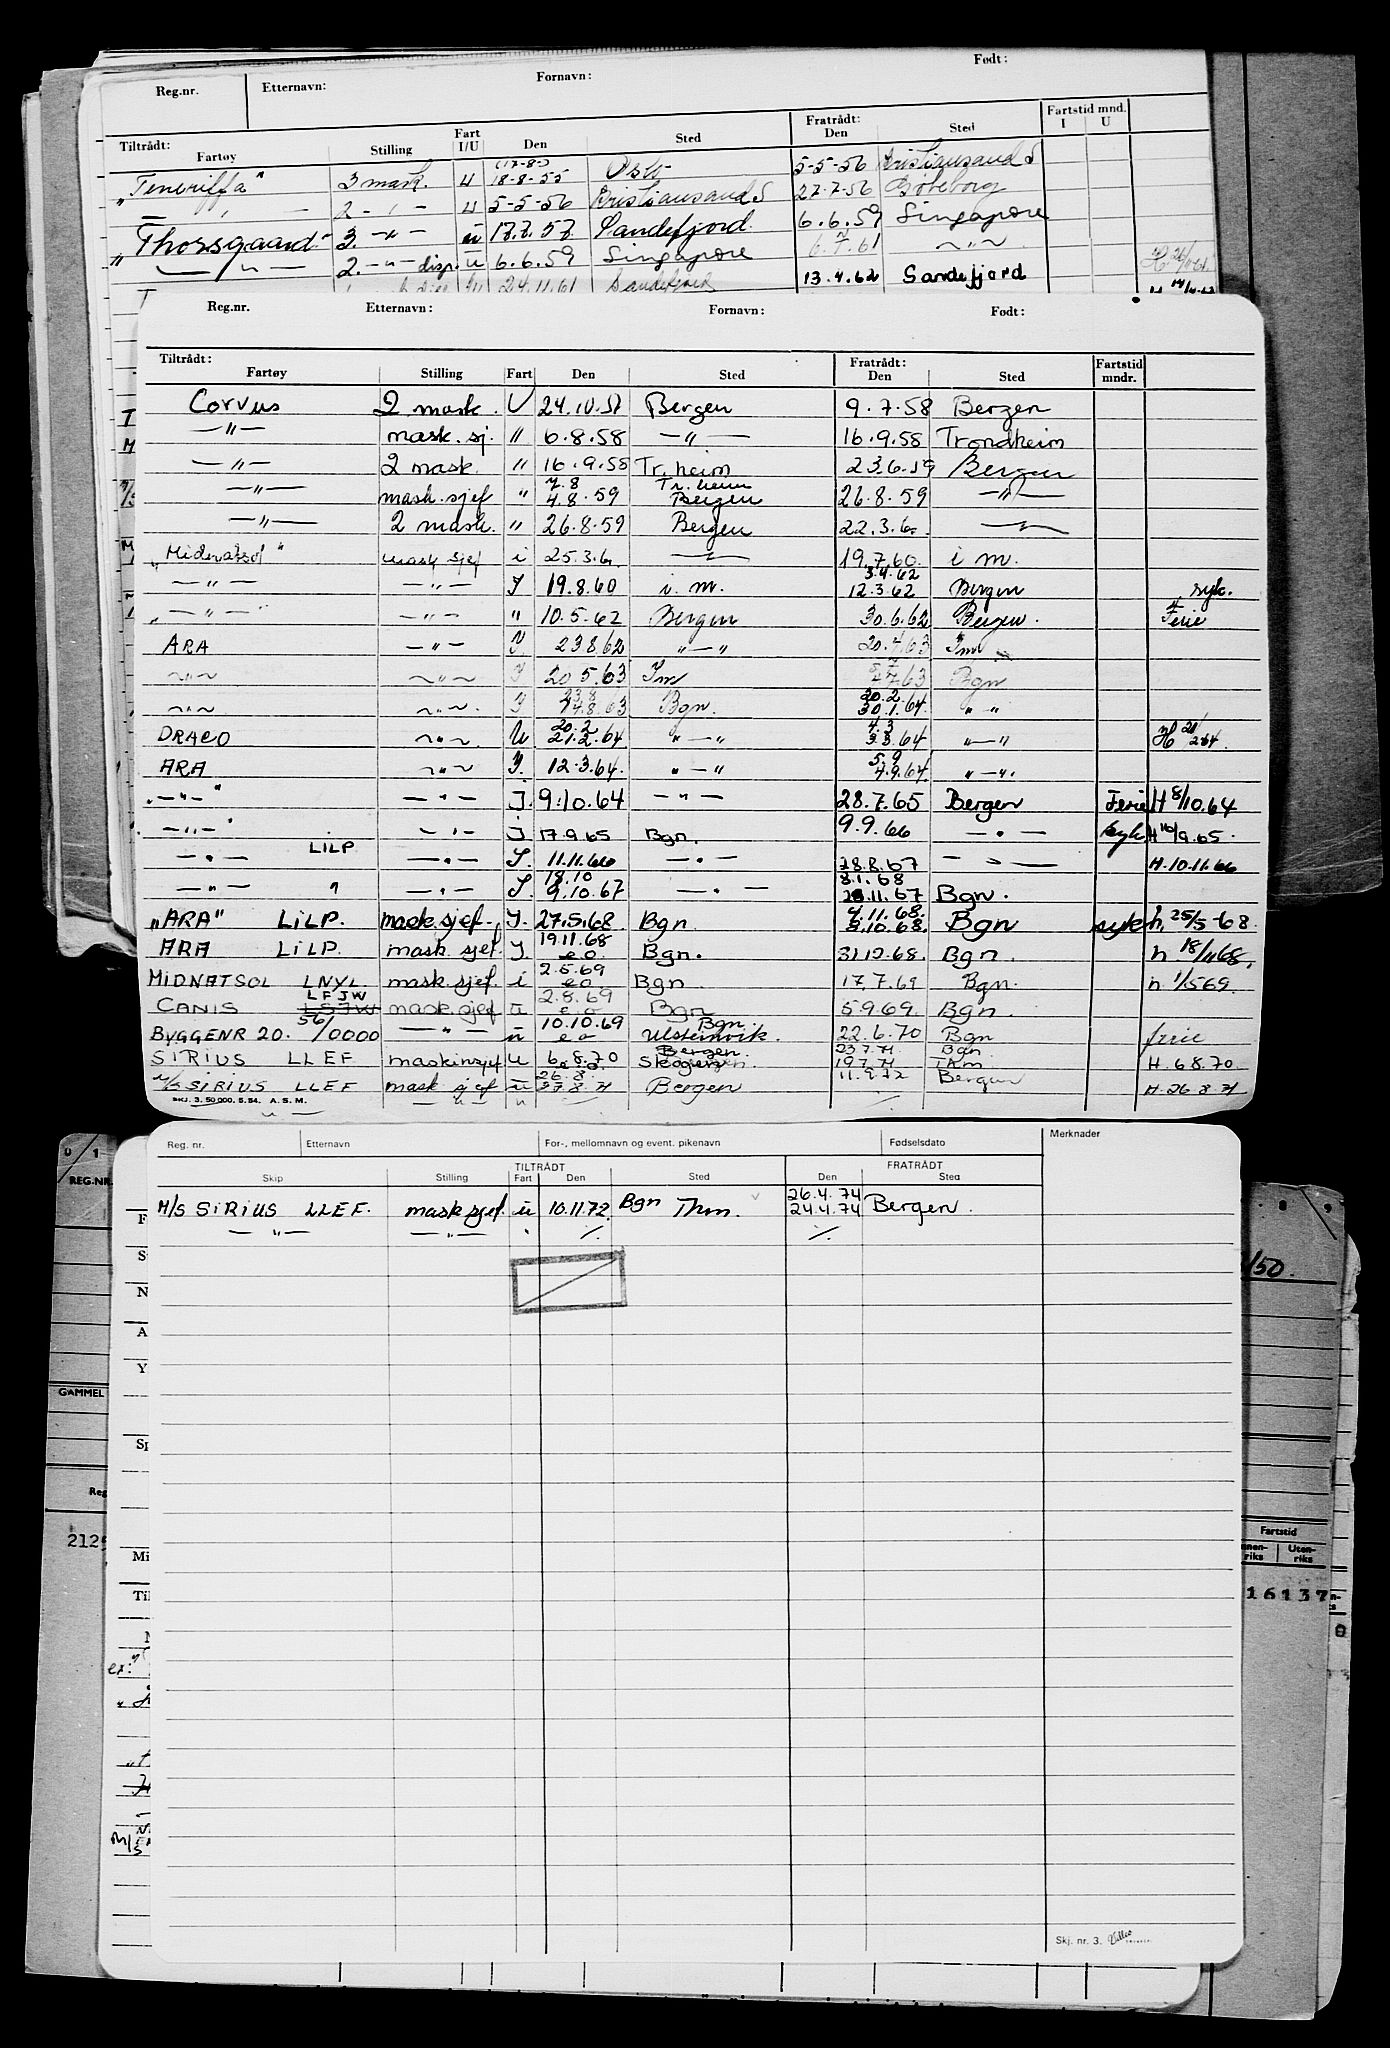 Reg.nr. Etternavn: Fornavn: Født:
Tiltrådt: Fartøy Stilling Fart I/U Den Sted Fratrådt: Den Sted Fartstid mnd. I U
"Teneriffa" 3 mask. u 18-8-55 Oslo 5-5-56 Kristiansand S
— " — 2 - " - u 5-5-56 Kristiansand S 27-7-56 Gøteborg
"Thorsgaard" 3. -"- u 17.7.57 Sandefjord 6.6.59 Singapore
— " — 2. -"- disp. u 6.6.59 Singapore 6.7.61 ~"~
24.11.61 Sandefjord 13.4.62 Sandefjord
Reg.nr. Etternavn: Fornavn: Født:
Tiltrådt: Fratrådt: Fartstid
Fartøy Stilling Fart Den Sted Den Sted mndr.
Corvus 2 mask. U 24.10.57 Bergen 9.7.58 Bergen
—"— mask.sj. " 6.8.58 —"— 16.9.58 Trondheim
—"— 2 mask. " 16.9.58 Tr.heim 23.6.59 Bergen
7.8 Tr.heim
—"— mask.sjef " 4.8.59 Bergen 26.8.59 —"—
—"— 2 mask. " 26.8.59 Bergen 22.3.60 —"—
"Midnatsol" mask sjef i 25.3.60 —"— 19.7.60 i m.
3.4.62
—"— —"— I 19.8.60 i. m. 12.3.62 Bergen syk.
—"— —"— " 10.5.62 Bergen 30.6.62 Bergen. Ferie
ARA —"— I. 23.8.62 "—" 20.4.63 Im
~"~ ~"~ I 20.5.63 Im 4.7.63 Bgn
23.8 20.2
~"~ ~"~ I 14.8.63 Bgn. 30.1.64 " "
20.2 4.3
DRACO ~"~ U 21.2.64 "—" 3.3.64 "—" H 20/2 64
5.9
ARA ~"~ I. 12.3.64. "—" 4.9.64. "—"
"—"—" —"— I. 9.10.64 —"— 28.7.65 Bergen Ferie H 8/10.64
—"— —"— I 17.9.65 Bgn. 9.9.66 —"— syk H 16/9.65.
—"— LILP —"— I. 11.11.66 —"— 28.8.67 —"— H.10.11.66
18.10 8.1.68
—"— " —"— I. 9.10.67 —"— 28.11.67 Bgn.
4.11.68.
"ARA" LILP. mask.sjef. I. 27.5.68 Bgn 3.10.68. Bgn syk h. 25/5-68
19.11.68
ARA LILP. mask.sjef. I. e.o. Bgn. 31.12.68. Bgn. h 18/11 68.
2.5.69
MIDNATSOL LNYL. mask.sjef. i e o Bgn 17.7.69 Bgn. h. 1/5 69.
LFJW 2.8.69
CANIS LSJW mask.sjef u e o Bgn 5969. Bgn.
56/ 10.10.69 Bgn.
BYGGENR 20. /0000 —"— u e o Ulsteinvik. 22.6.70 Bgn ferie
Bergen. 23.7.71. Bgn.
SIRIUS LLEF maskinsjef u 6.8.70 Skogen 19.7.71 H.6.8.70
26.8.
M/S SIRIUS LLEF mask sjef u 27.8.71 Bergen 11.9.72 Bergen H.26.8.71
SKJ. 3. 50 000. 5.54. A.S.M.
—"— —"— "
Reg. nr. Etternavn For-, mellomnavn og event. pikenavn Fødselsdato Merknader
TILTRÅDT FRATRÅDT
Skip Stilling Fart Den Sted Den Sted
26.4.74
M/S SIRIUS LLEF. mask sjef. u 10.11.72. Bgn Thm. 24.4.74 Bergen
—"— —"— " ./. ./.
Skj. nr. 3.
0 1
REG.NR.
GAMMEL
Reg
2125
F
S
N
A
Y
Sp
Mi
Til
ex:
M/S
8 9
/50.
Fartstid
Innenriks Utenriks
16137